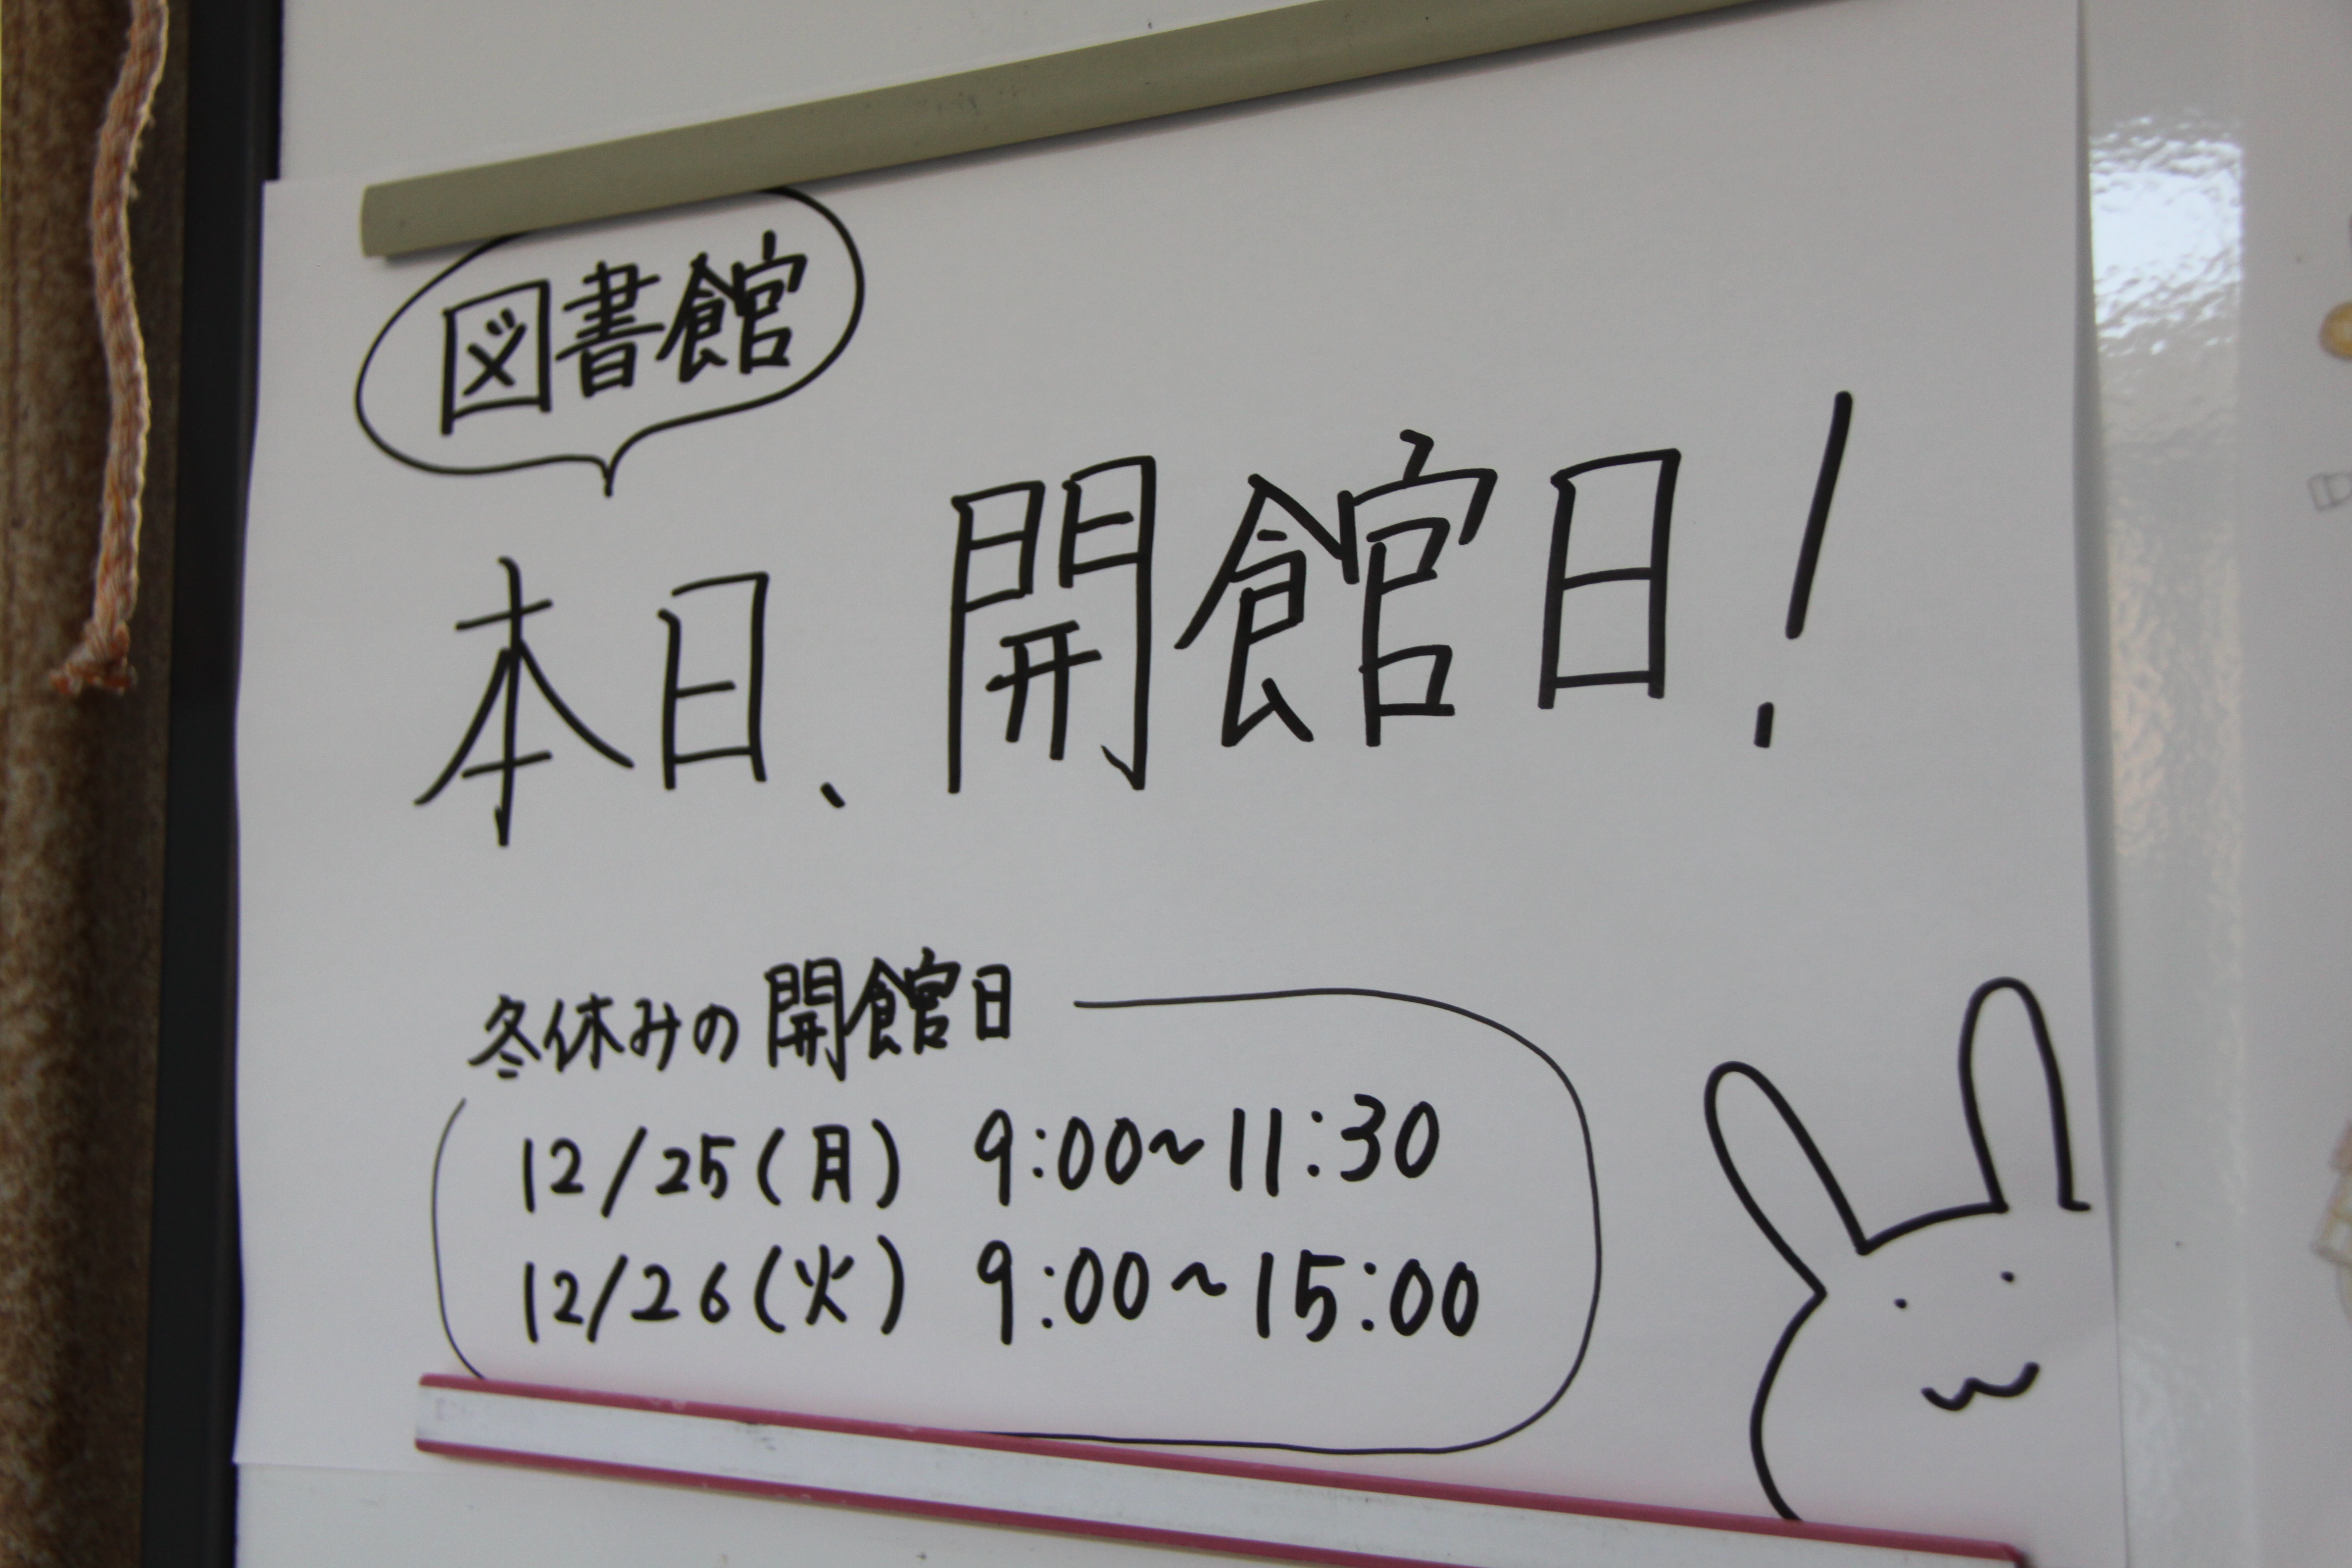 図書館
本日、開館日!
冬休みの開館日
12/25(月) 9:00~11:30
12/26(火) 9:00~15:00